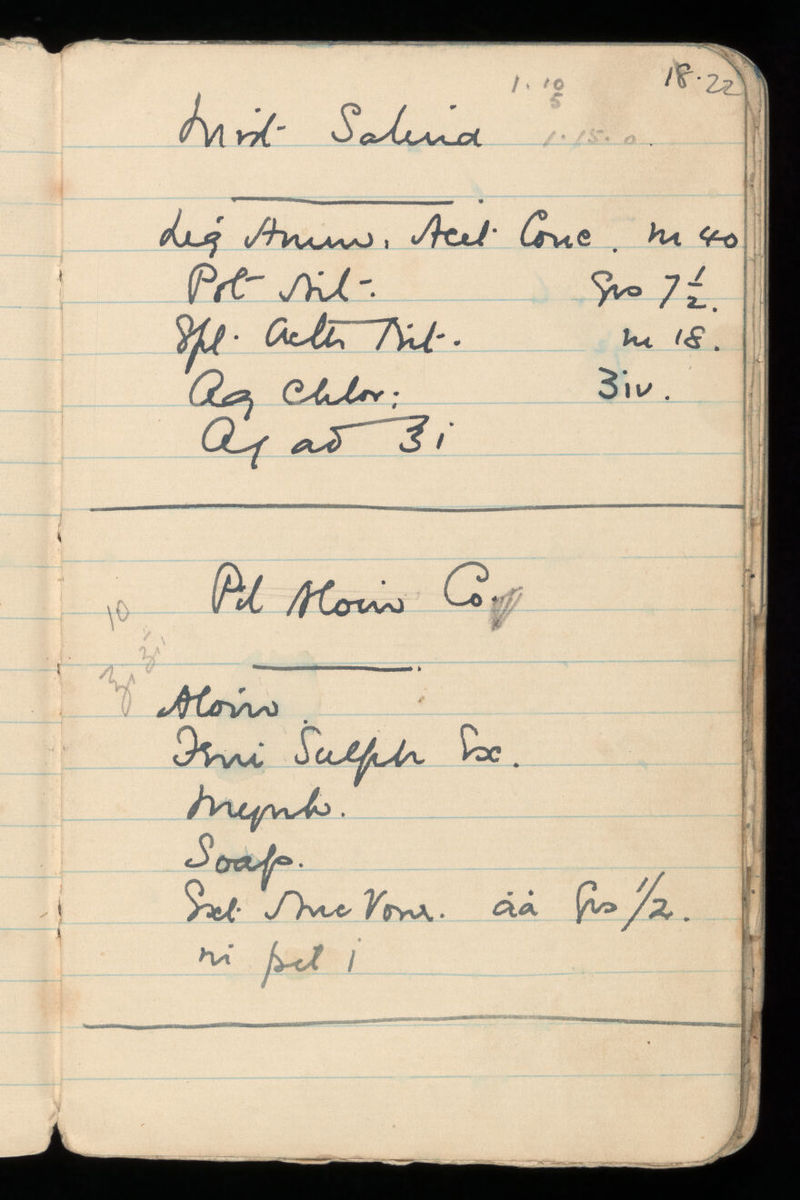 18.22
1. 10
5
1.15.0
Mist Salina
Liq Ammon. Acet Conc. m 40
Pot Nit. Grs 7 1/2.
Spt. Aeth Nit. m 18.
Aq Chlor: ʒiv.
Aq ad ℥i
Pil Aloin Co.
10
Aloin.
Ferri Sulph Ex.
Myrrh.
Soap.
Ext. Nuc Vom. āā Grs 1/2.
in pil i